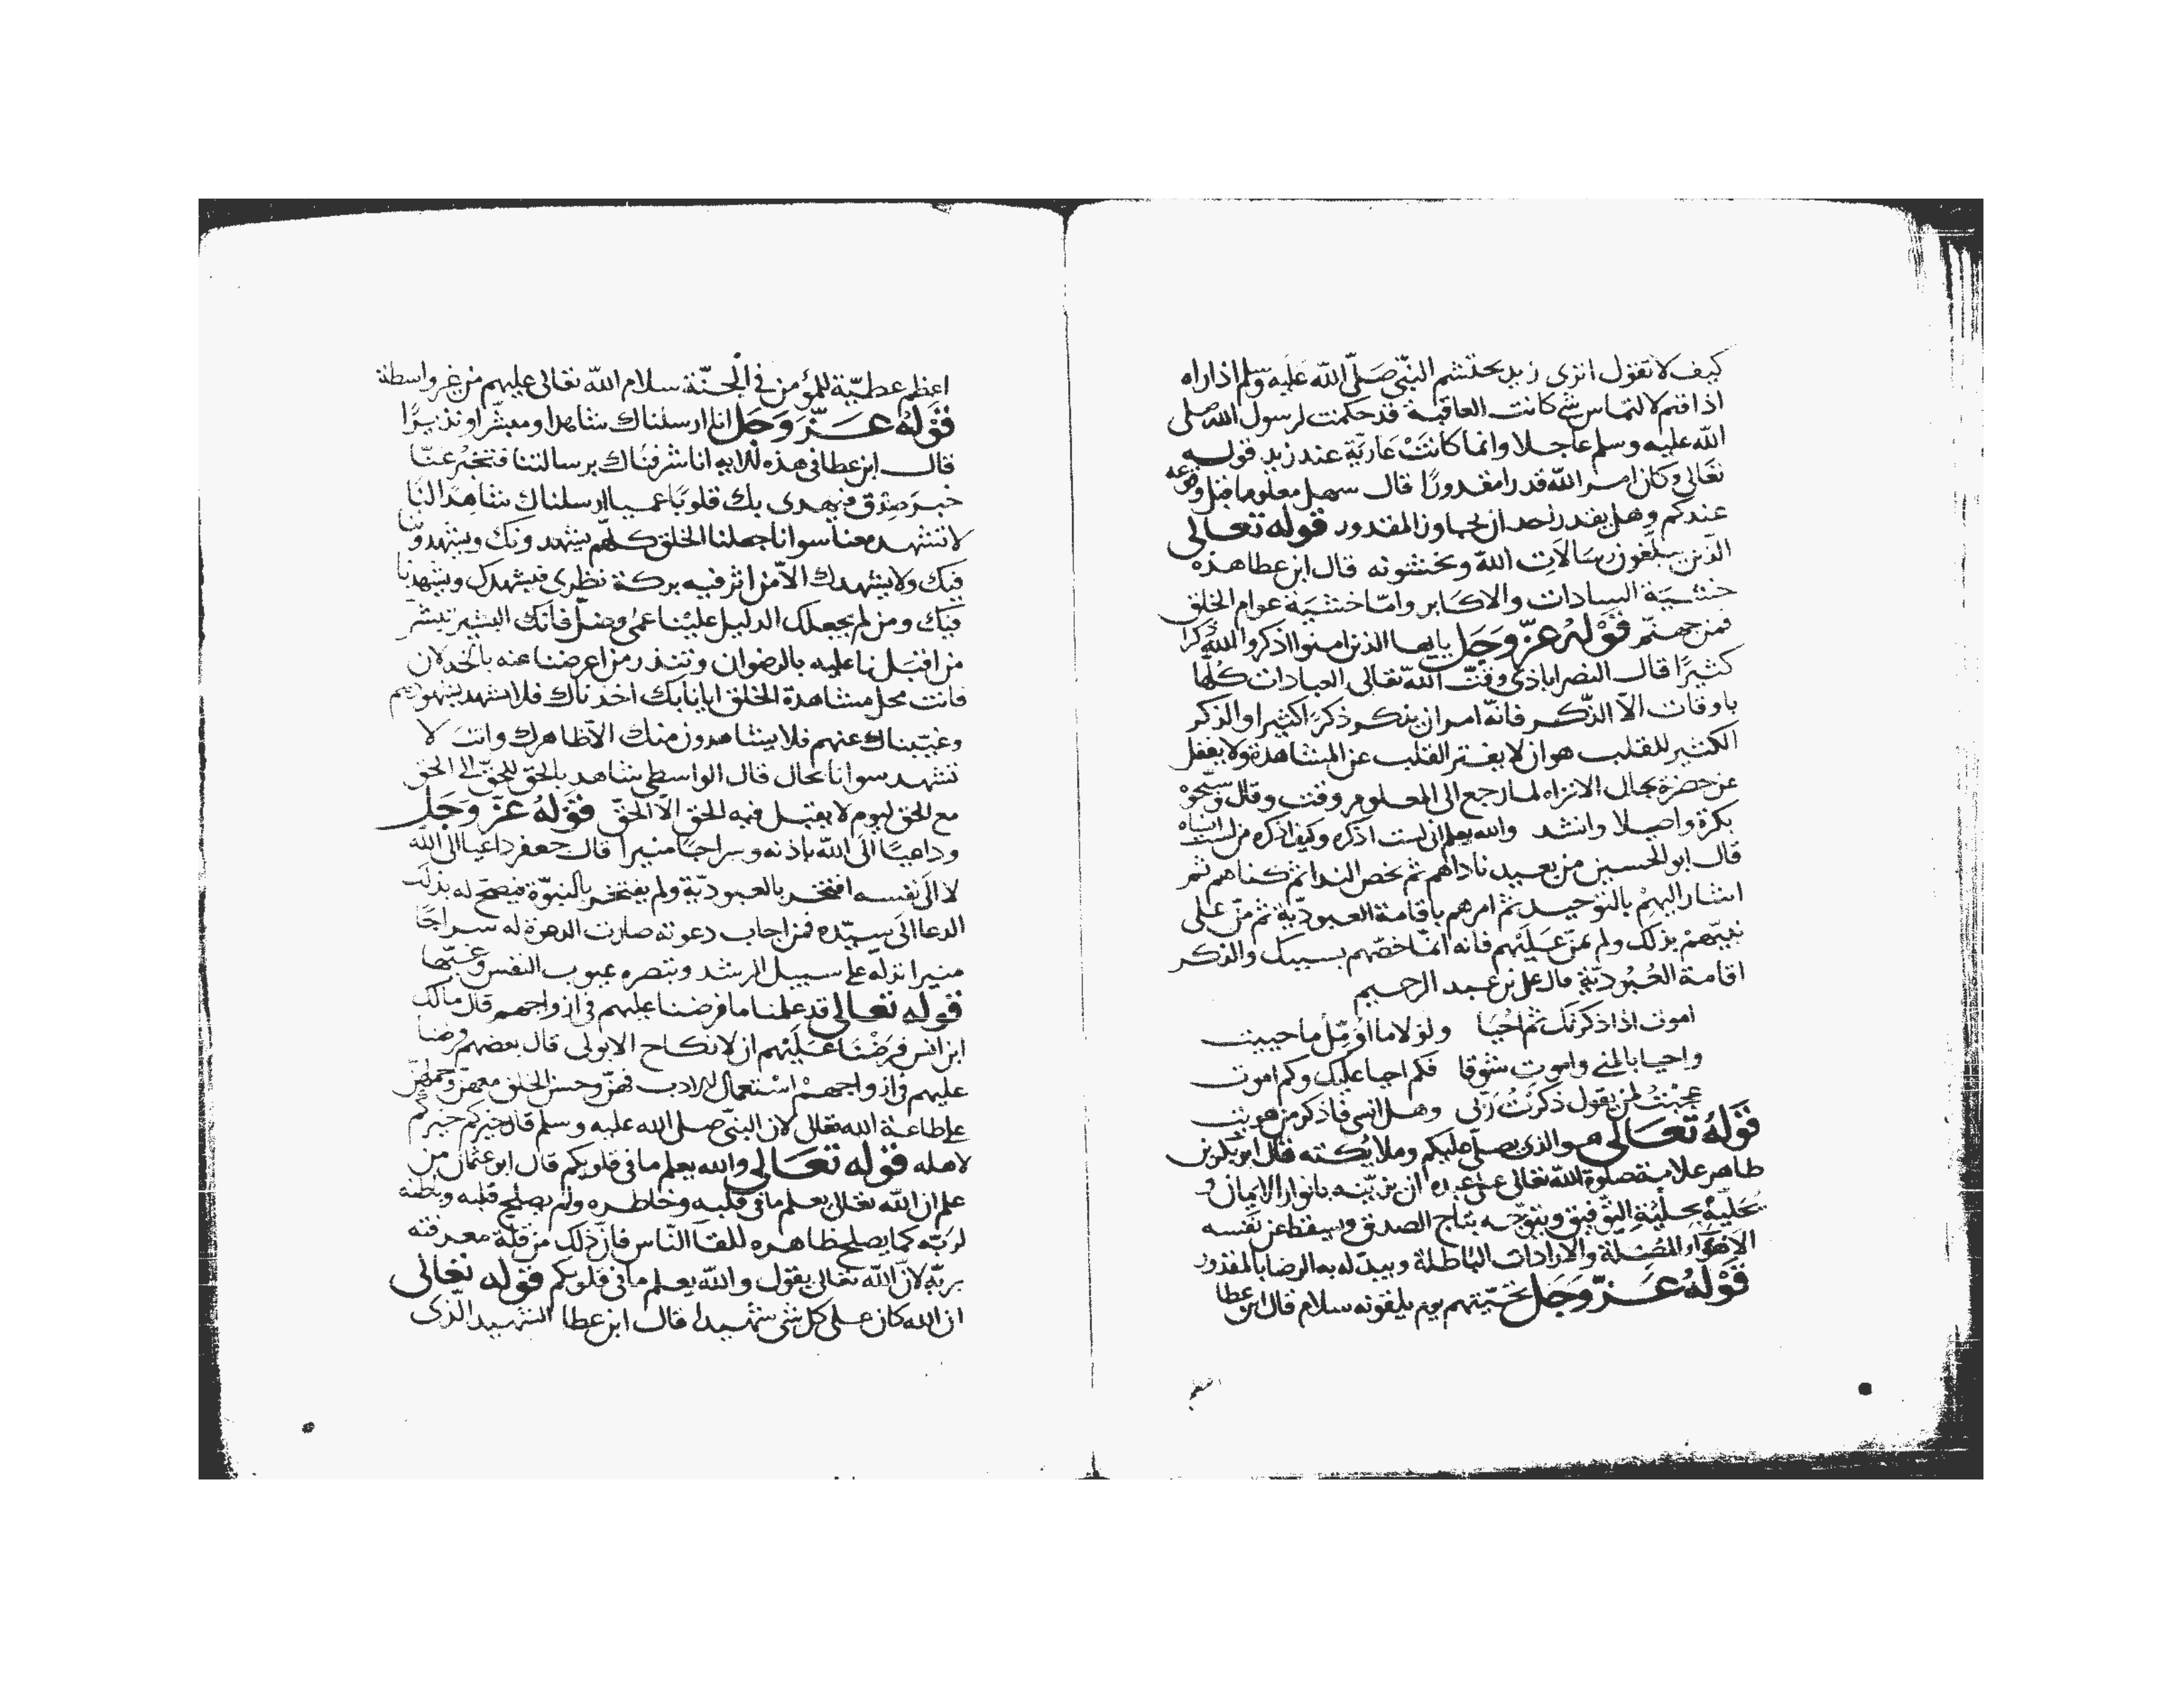 كيف لا تقول اترى زيد يحتشم النبي صَلّى الله عَليه وسلم اذا راه
اذا قتم لالتماس شي كانت العاقبة قد حكمت لرسول الله صلى
الله عليه وسلم عاجلا وانما كانَتْ عَاريّة عند زيد قوله
تعَالى وكان امر الله قدرا مقدورًا قال سهل معلوما قبل وقوعه
عندكم وهل يقدر احد ان يجاوز المقدور قوله تعالى
الذين يبلّغون رسَالاَت الله ويخشونه قال ابن عطا هذه
خشيَة السادات والاكابر وامّا خشيَة عوام الخلق
فمن جهنّم قَوْلهُ عزّ وَجَل يا يها الذين امنوا اذكروا الله ذكرا
كثيرًا قال النصراباذى وقّت الله تعَالى العبادات كلها
باوقات الاّ الذّكر فانّه امر ان يذكر ذكرًا كثيرا والذكر
الكثير للقلب هو ان لا يفتر القلب عن المشاهدة ولا يغفل
عن حضرة بحال الانزاه لما رجع الى المعلوم وقت وقال وسبّحوْ
بكرة واصيلا وانشد والله يعلم انى لست اذكره وكيف اذكره من لست انساه
قال ابو الحسين من بعيد ناداهم ثم يخص الندا ثم كناهم ثم
اشار اليهِمْ بالتوحيد ثم امرهم باقامة العبوديّة ثم مَنّ على
نبيّهمْ بذلك ولم يمنّ عَليْهم فانه انمّا خصّهم بسببك والذكر
اقامة العُبُوديّة قال على بن عبد الرحيم
اموت اذا ذكرتك ثم احْيَا ولولا ما اؤمّل ما حييت
واحيا بالمنى واموت شوقا فكم احيا عليك وكم اموت
عجبْتُ لمن يقول ذكرْتُ رَبّى وهل انسى فاذكر من هويت
قَوْلهُ تعَالى هو الذى يصلّى عليكم وملايكته قال ابو بكر بن
طاهر علامة صلوة الله تعالى على عبده ان يزيّنه بانوار الايمان و
يحَليّهُ بحليْةِ التّوفيق ويتوّجه بتاج الصدق ويسقط عن نَفسه
الاهوَاء المضلة والارادات البَاطلة ويبدّله به الرضا بالمقدور
قَوْلهُ عَزّ وَجَل تحيّتهم يوم يلقونه سلام قال ابن عطا
اعظم عطيّة للمؤمن فى الجنّة سلام الله تعالى عليهم من غير واسطة
قوَلهُ عَزّ وَجَل انا ارسلناك شاهدا ومبشّرا ونذيرًا
قال ابن عطا فى هذه الايه انا شرفناك برسالتنا فتخبر عنّا
خبر صِدْق فيهدى بك قلوبًا عميا ارسلناك شاهِدًا لنا
لا تشهد معنا سوانا جعلنا الخلق كلّهم يشهدونك ويشهدونا
فيك ولا يشهدك الاّ من اثر فيه بركة نظرى فيشهدك ويشهدنا
فيك ومن لم يجعلك الدليل عليْنا عمى وضلّ فانّك البشير تبشر
من اقبل نا عليه بالرضوان وتنذر من اعرضنا عنه بالخذلان
فانت محل مشاهدة الخلق ايانا بك اخذناك فلا تشهد بشهودهم
وغيّبناك عنهم فلا يشاهدون منك الاّ ظاهرك وانتَ لا
تشهد سوانا بحال قال الواسطى شاهد بالحق للحقّ الى الحق
مع الحق ليوم لا يقبل فيه الحق الاّ الحقّ قوَلهُ عَزّ وَجَل
وداعيًا الى الله باذنه وسراجًا منيرا قال جعفر داعيا الى الله
لا الى نفسه افتخر بالعبوديّة ولم يفتخر بالنبوّة ليصحّ له بذلك
الدعا الى سيّده فمن اجاب دعوته صارت الدعوة له سراجًا
منيرا تزلّه على سبيل الرشد وتبصره عيوب النفس وغيّها
قوله تعالى قد علمنا ما فرضنا عليهم فى ازواجهم قال مالك
ابن انس فرَضْنَا عَليْهم ان لا نكاح الا بولى قال بعضهم فرضنا
عليهم فى ازواجهمْ استعمال الادب فهنّ وحسن الخلق معهنّ وحملهنّ
على طاعة الله تعالى لان النبىّ صلى الله عليه وسلم قال خيركم خيركم
لاهله قوله تعَالى والله يعلم ما فى قلوبكم قال ابو عثمان من
علم ان الله تعَالى يعلم ما فى قلبه وخاطره ولم يصلح قلبه وباطنه
لربّه كما يصلح ظاهره للقآ النّاس فانّ ذلك من قلّة معرفته
بربّه لانّ الله تعالى يقول والله يعلم ما فى قلوبكم قوله تعالى
ان الله كان على كل شى شهيدا قال ابن عطا الشهيد الذى